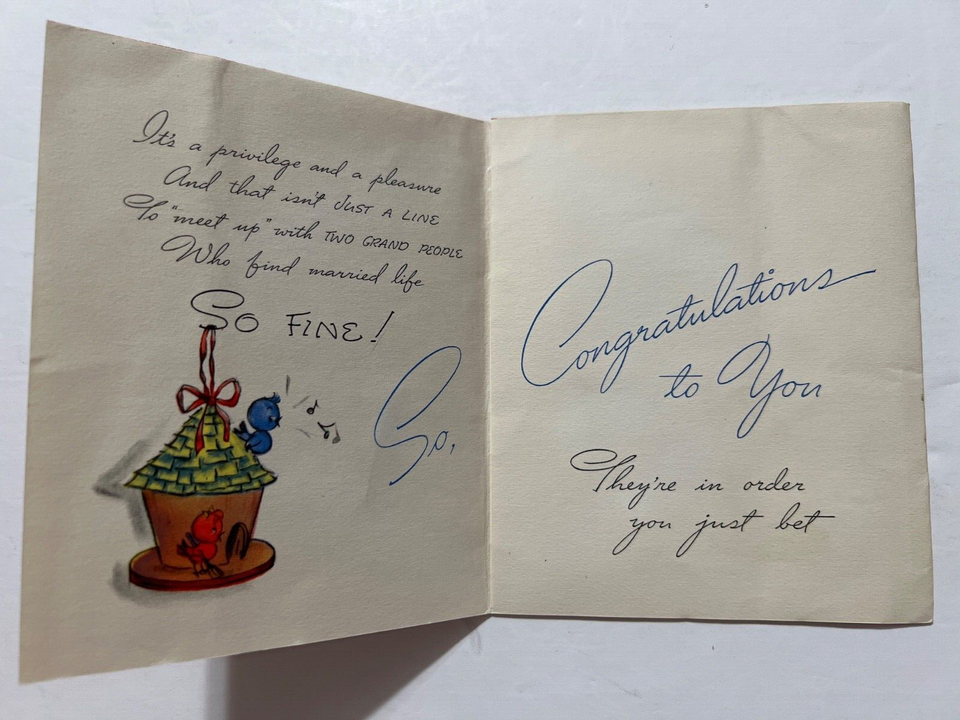 It's a privilege and a pleasure
And that isn't JUST A LINE
To "meet up" with TWO GRAND PEOPLE
Who find married life
SO FINE!
So,
Congratulations
to You
They're in order
you just bet